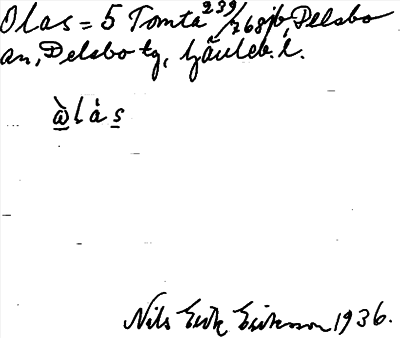 Olas = 5 Tomta 239/268 jb, Delsbo
sn, Delsbo tg, Gävleb. l.
òlás
Nils Erik Eriksson 1936.